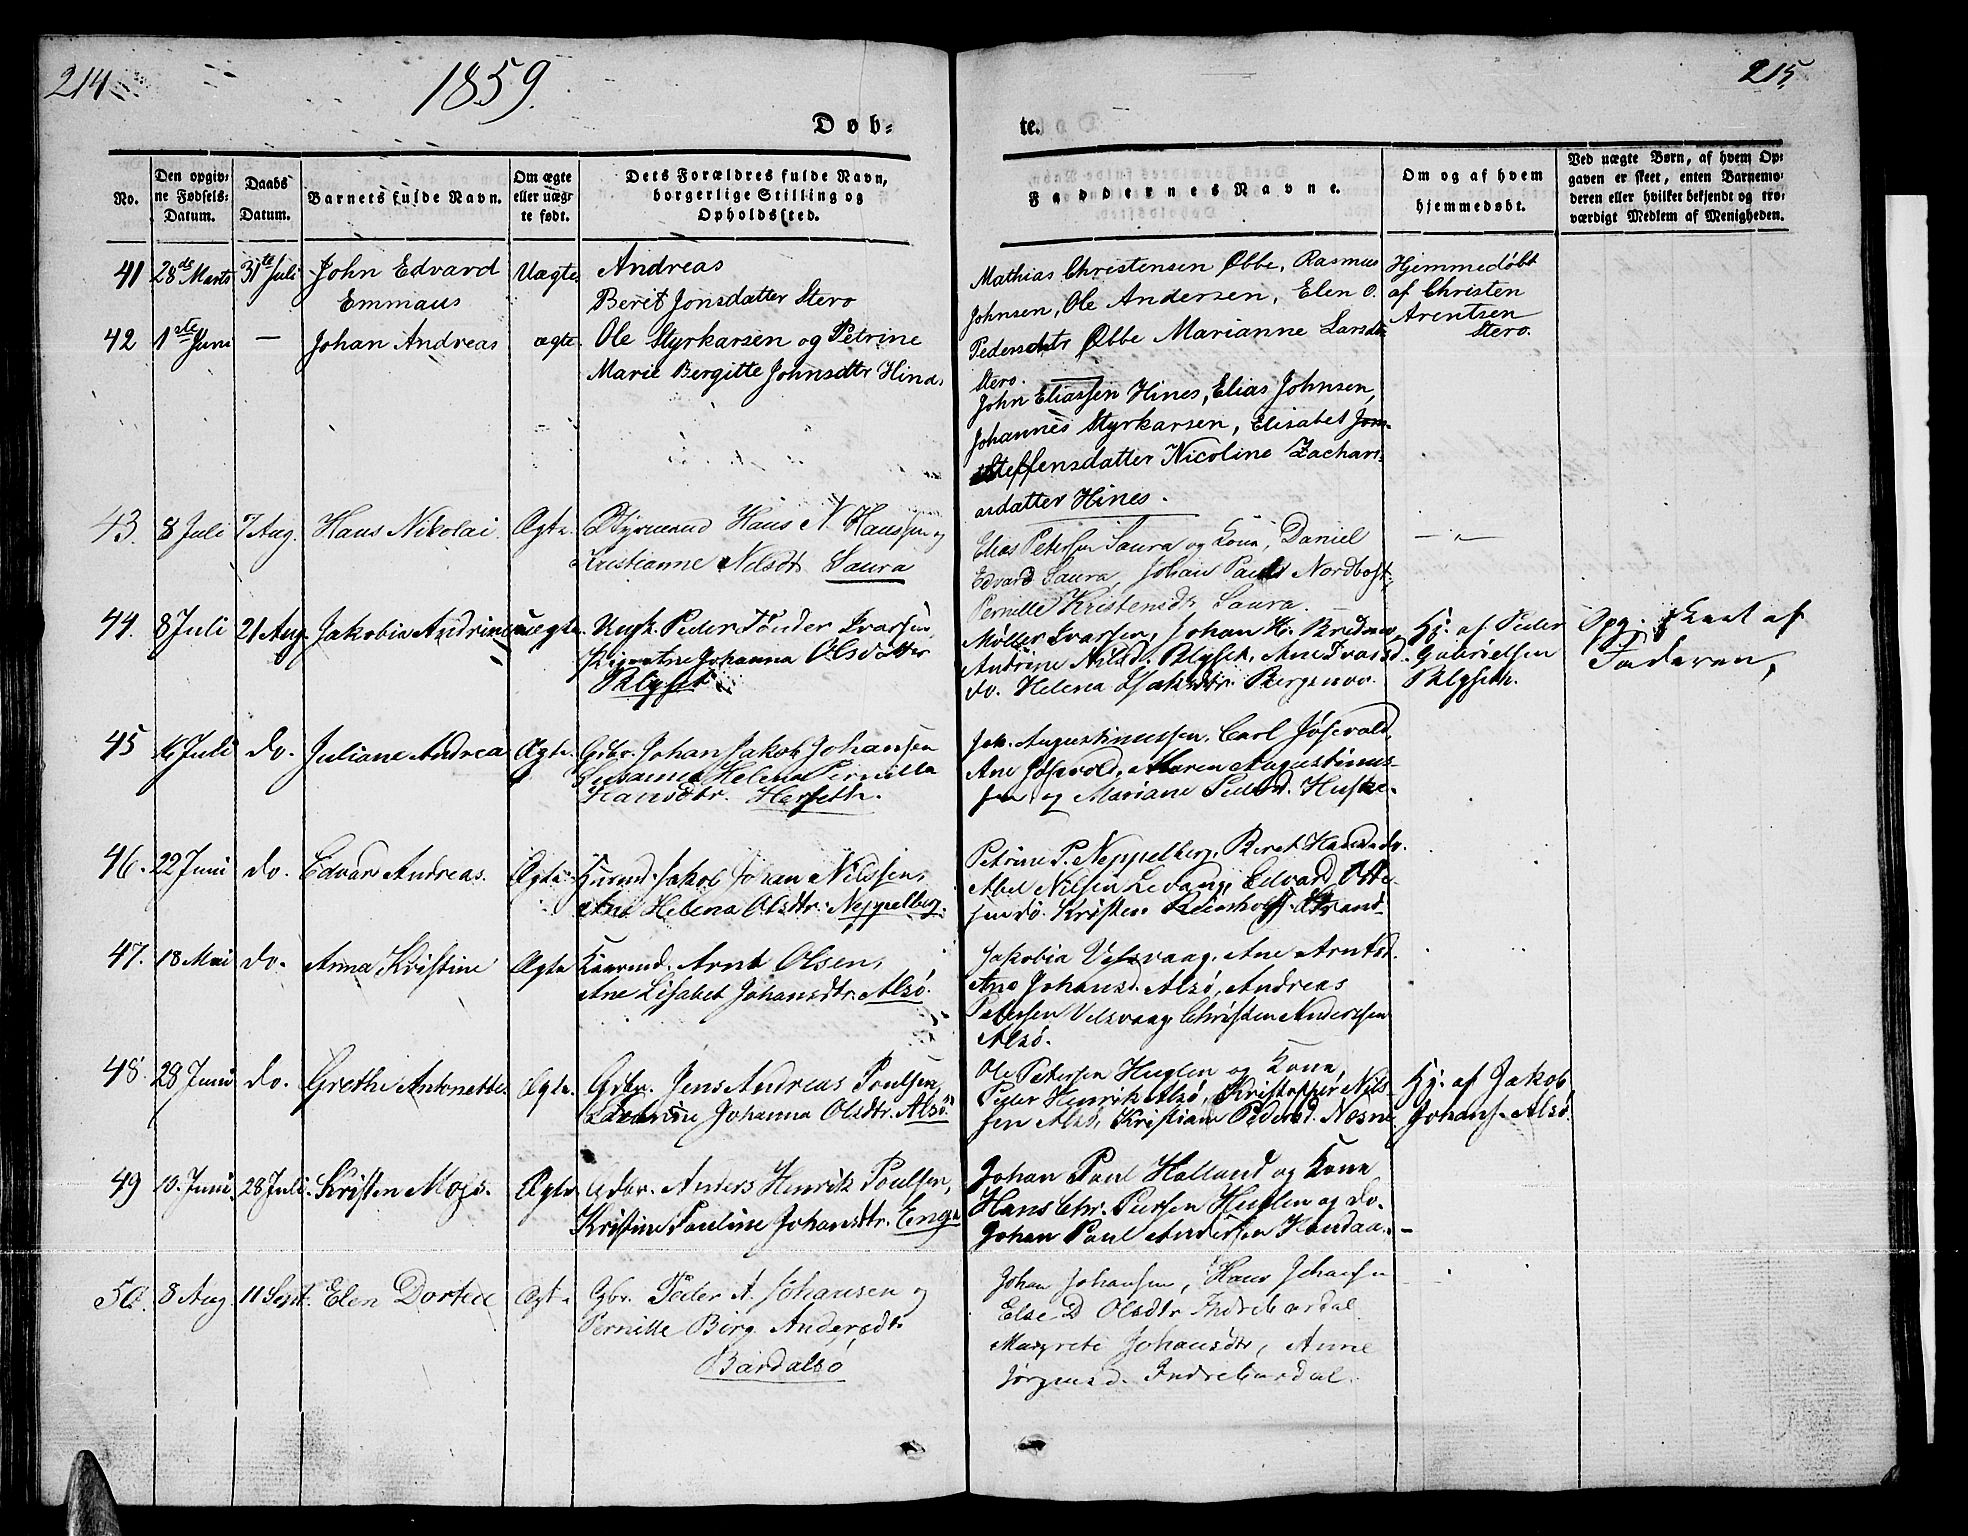 214
1859.
215
Døb-
te.
No.
Den opgiv-
ne Fødsels-
Datum.
Daabs
Datum.
Barnets fulde Navn.
Om ægte
eller uæg-
te født.
Dets Forældres fulde Navn,
borgerlige Stilling og
Opholdssted.
Faddernes Navne.
Om og af hvem
hjemmedøbt.
Ved uægte Børn, af hvem Op-
gaven er skeet, enten Barnemo-
deren eller hvilket bekjendt og tro-
værdigt Medlem af Menigheden.
41
28de Marts
31te Juli
John Edvard
Emmaus
Uægte.
Andreas
Berit Jonsdatter Stero
Mathias Christensen Øbbe, Rasmus
Johnsen, Ole Andersen, Elen O.
Pedersdatr Øbbe Marianne Larsdtr
Stero.
Hjemmedøbt
af Christen
Arentsen
Stero.
42
1ste Juni
—
Johan Andreas
ægte.
Ole Styrkarsen og Petrine
Marie Bergitte Johnsdtr Hines
John Eliassen Hines, Elias Johnsen,
Johannes Styrkarsen, Elisabet
Steffensdatter Nicoline Zachari-
asdatter Hines.
43.
8 Juli
7 Aug.
Hans Nikolai
Ægte
Styrmand Hans N. Hanssen og
Kristianne Nilsdt Saura
Elias Petersen Saura og Kone, Daniel
Edvard Saura, Johan Paul Nordbost,
Pernille Kristensdr Saura.
— " —
44.
8 Juli
21 Aug.
Jakobia Andrine
uægte.
Ungk. Peder Tönder Ivarsen,
Pige Ane Johanna Olsdatter
Blyset
Möller Ivarsen, Johan H.
Andrine Nilsd. Blyset, Ane Ivarsd.
do. Helena Isaksdtr.
Hj. af Peder
Gabrielsen
Blyseth.
Opg. skeet af
Faderen,
45
16 Juli
do.
Juliane Andrea
Ægte.
Gdbr. Johan Jakob Johansen
Susanna Helena Pernilla
Hansdtr. Herseth.
Joh. Augustinussen, Carl Jösevold,
Ane Jösevold, Maren Augustinus-
sen og Mariane Pedersd. Huske.
46.
22 Juni
do.
Edvard Andreas.
Ægte
Husmd. Jakob Johan Nilssen,
Ane Helena Olsdtr. Neppelberg.
Petrine P. Neppelberg, Beret Hansd. do.
Abel Nilsen Levang, Edvard Otte-
sen do. Kristen Strand
47.
18 Mai
do.
Anna Kristine
Ægte
Kaarmd. Arnt Olsen,
Ane Lisabet Johansdtr. Alsö.
Jakobia Velsvaag, Ane Arntsd.
Ane Johansd. Alsö, Andreas
Petersen Velsvaag Christen Andersen
Alsö.
48.
28 Juni
do.
Grethe Antonette.
Ægte.
Gdbr. Jens Andreas Poulsen,
Johanna Olsdtr. Alsö
Ole Petersen Huglen og Kone,
Peder Henrik Alsö, Kristopher Nils-
sen Alsö, Kristiane Pedersd. Nesne
Hj. af Jakob
Johans. Alsö.
49
10. Juni.
28 Juli.
Kristen Mogs.
Ægte
Gdbr. Anders Henrik Poulsen,
Kristine Pauline Johansdtr. Enge
Johan Paul Holland og Kone
Hans Chr. Persen Huglen og do.
Johan Paul Andersen Handaa. —
50.
8 Aug
11 Sept.
Elen Dortea
Ægte
Gbr. Peder A. Johansen og
Pernille Birg. Andersdtr
Bardalsö
Johan Johansen, Hans Johansen
Else D Olsdtr Indrebardal
Margrete Johansdtr, Anne
Jörgensd. Indrebardal.